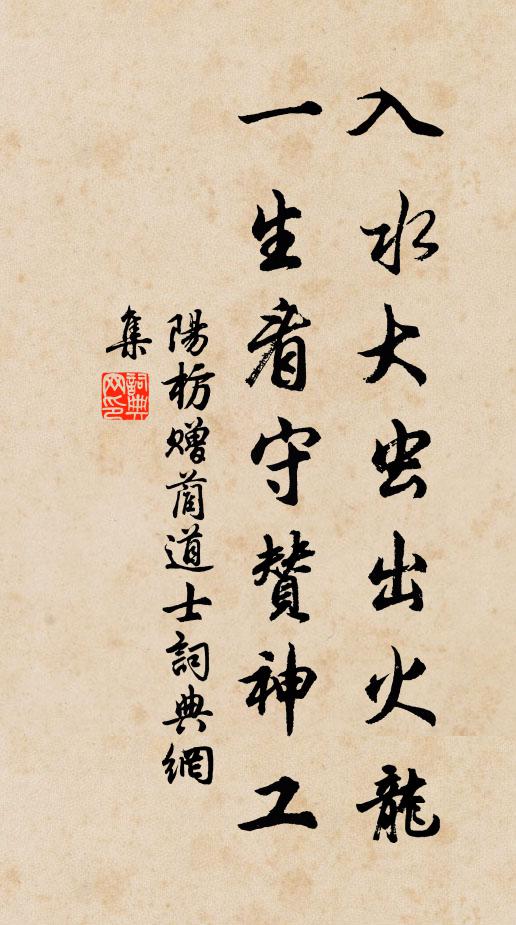 入水大虫出火龍
一生看守贊神工
陽枋贈蔄道士詞典網
集
詞典
网印